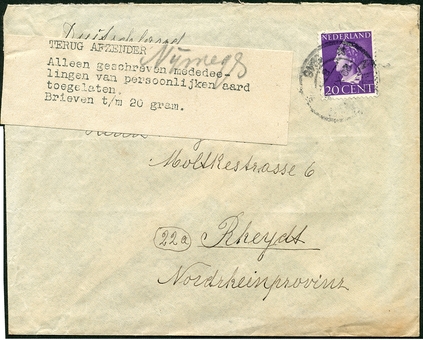 Duitschland
TERUG AFZENDER
Nijmegs
Alleen geschreven mededee-
lingen van persoonlijken aard
toegelaten.
Brieven t/m 20 gram.
NEDERLAND
20 CENT
Moltkestrasse 6
22a Rheydt
Nordrheinprovinz